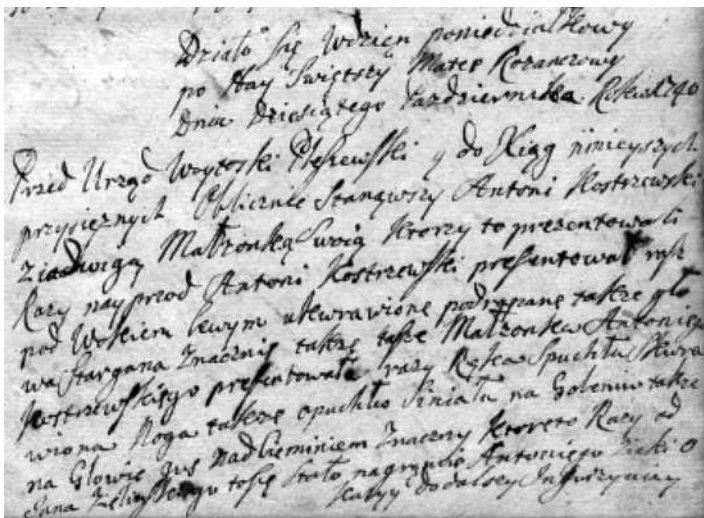 Działo się Wdzięn poniedziałkowy
po Nay Swiętszy Matce Rozancowy
Dnia Dziesiątego Pazdziernika Roku 1740
Przed Urząd Woytoski Plesewski y do Xiąg ninieyszych
przysięznych Oblicznie Stanąwszy Antoni Kostrzewski
Ziadwigą Małzonką Swoią Ktorzy to prezentowali
Razy nayprzod Antoni Kostrzewski presentował raz
pod Wokiem lewym ukrwawione podrapane takze gło
wa Stargana Znacznie takze tasze Małzonka Antoniego
Kostrzewskiego presentowała razy Ręka Spuchła Skrwa
wiona Noga takze opuchło Siniała na Goleniu takze
na Głowie Nad Ciminiem Znaczny Ktoreto Razy od
Jana tosię Stało nagruncie Antoniego
do dalszey Inquizycyiey